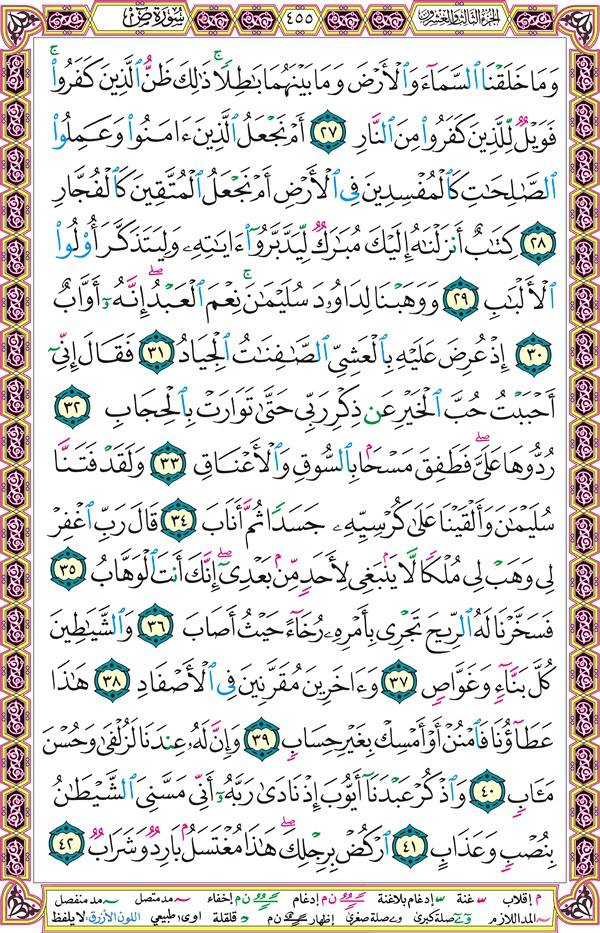 الجزء الثالث والعشرون ٤٥٥ سورة ص
وَمَا خَلَقْنَا ٱلسَّمَآءَ وَٱلْأَرْضَ وَمَا بَيْنَهُمَا بَٰطِلًا ۚ ذَٰلِكَ ظَنُّ ٱلَّذِينَ كَفَرُوا۟ ۚ
فَوَيْلٌ لِّلَّذِينَ كَفَرُوا۟ مِنَ ٱلنَّارِ ٢٧ أَمْ نَجْعَلُ ٱلَّذِينَ ءَامَنُوا۟ وَعَمِلُوا۟
ٱلصَّٰلِحَٰتِ كَٱلْمُفْسِدِينَ فِى ٱلْأَرْضِ أَمْ نَجْعَلُ ٱلْمُتَّقِينَ كَٱلْفُجَّارِ
٢٨ كِتَٰبٌ أَنزَلْنَٰهُ إِلَيْكَ مُبَٰرَكٌ لِّيَدَّبَّرُوٓا۟ ءَايَٰتِهِۦ وَلِيَتَذَكَّرَ أُو۟لُوا۟
ٱلْأَلْبَٰبِ ٢٩ وَوَهَبْنَا لِدَاوُۥدَ سُلَيْمَٰنَ ۚ نِعْمَ ٱلْعَبْدُ ۖ إِنَّهُۥٓ أَوَّابٌ
٣٠ إِذْ عُرِضَ عَلَيْهِ بِٱلْعَشِىِّ ٱلصَّٰفِنَٰتُ ٱلْجِيَادُ ٣١ فَقَالَ إِنِّىٓ
أَحْبَبْتُ حُبَّ ٱلْخَيْرِ عَن ذِكْرِ رَبِّى حَتَّىٰ تَوَارَتْ بِٱلْحِجَابِ ٣٢
رُدُّوهَا عَلَىَّ ۖ فَطَفِقَ مَسْحًۢا بِٱلسُّوقِ وَٱلْأَعْنَاقِ ٣٣ وَلَقَدْ فَتَنَّا
سُلَيْمَٰنَ وَأَلْقَيْنَا عَلَىٰ كُرْسِيِّهِۦ جَسَدًا ثُمَّ أَنَابَ ٣٤ قَالَ رَبِّ ٱغْفِرْ
لِى وَهَبْ لِى مُلْكًا لَّا يَنۢبَغِى لِأَحَدٍ مِّنۢ بَعْدِىٓ ۖ إِنَّكَ أَنتَ ٱلْوَهَّابُ ٣٥
فَسَخَّرْنَا لَهُ ٱلرِّيحَ تَجْرِى بِأَمْرِهِۦ رُخَآءً حَيْثُ أَصَابَ ٣٦ وَٱلشَّيَٰطِينَ
كُلَّ بَنَّآءٍ وَغَوَّاصٍ ٣٧ وَءَاخَرِينَ مُقَرَّنِينَ فِى ٱلْأَصْفَادِ ٣٨ هَٰذَا
عَطَآؤُنَا فَٱمْنُنْ أَوْ أَمْسِكْ بِغَيْرِ حِسَابٍ ٣٩ وَإِنَّ لَهُۥ عِندَنَا لَزُلْفَىٰ وَحُسْنَ
مَـَٔابٍ ٤٠ وَٱذْكُرْ عَبْدَنَآ أَيُّوبَ إِذْ نَادَىٰ رَبَّهُۥٓ أَنِّى مَسَّنِىَ ٱلشَّيْطَٰنُ
بِنُصْبٍ وَعَذَابٍ ٤١ ٱرْكُضْ بِرِجْلِكَ ۖ هَٰذَا مُغْتَسَلٌۢ بَارِدٌ وَشَرَابٌ ٤٢
م إقلاب غنة إدغام بلاغنة ن م إدغام ن م إخفاء مد متصل مد منفصل
المد اللازم صلة كبرى صلة صغرى إظهار ن م قلقلة اوى طبيعي اللون الأزرق: لا يلفظ